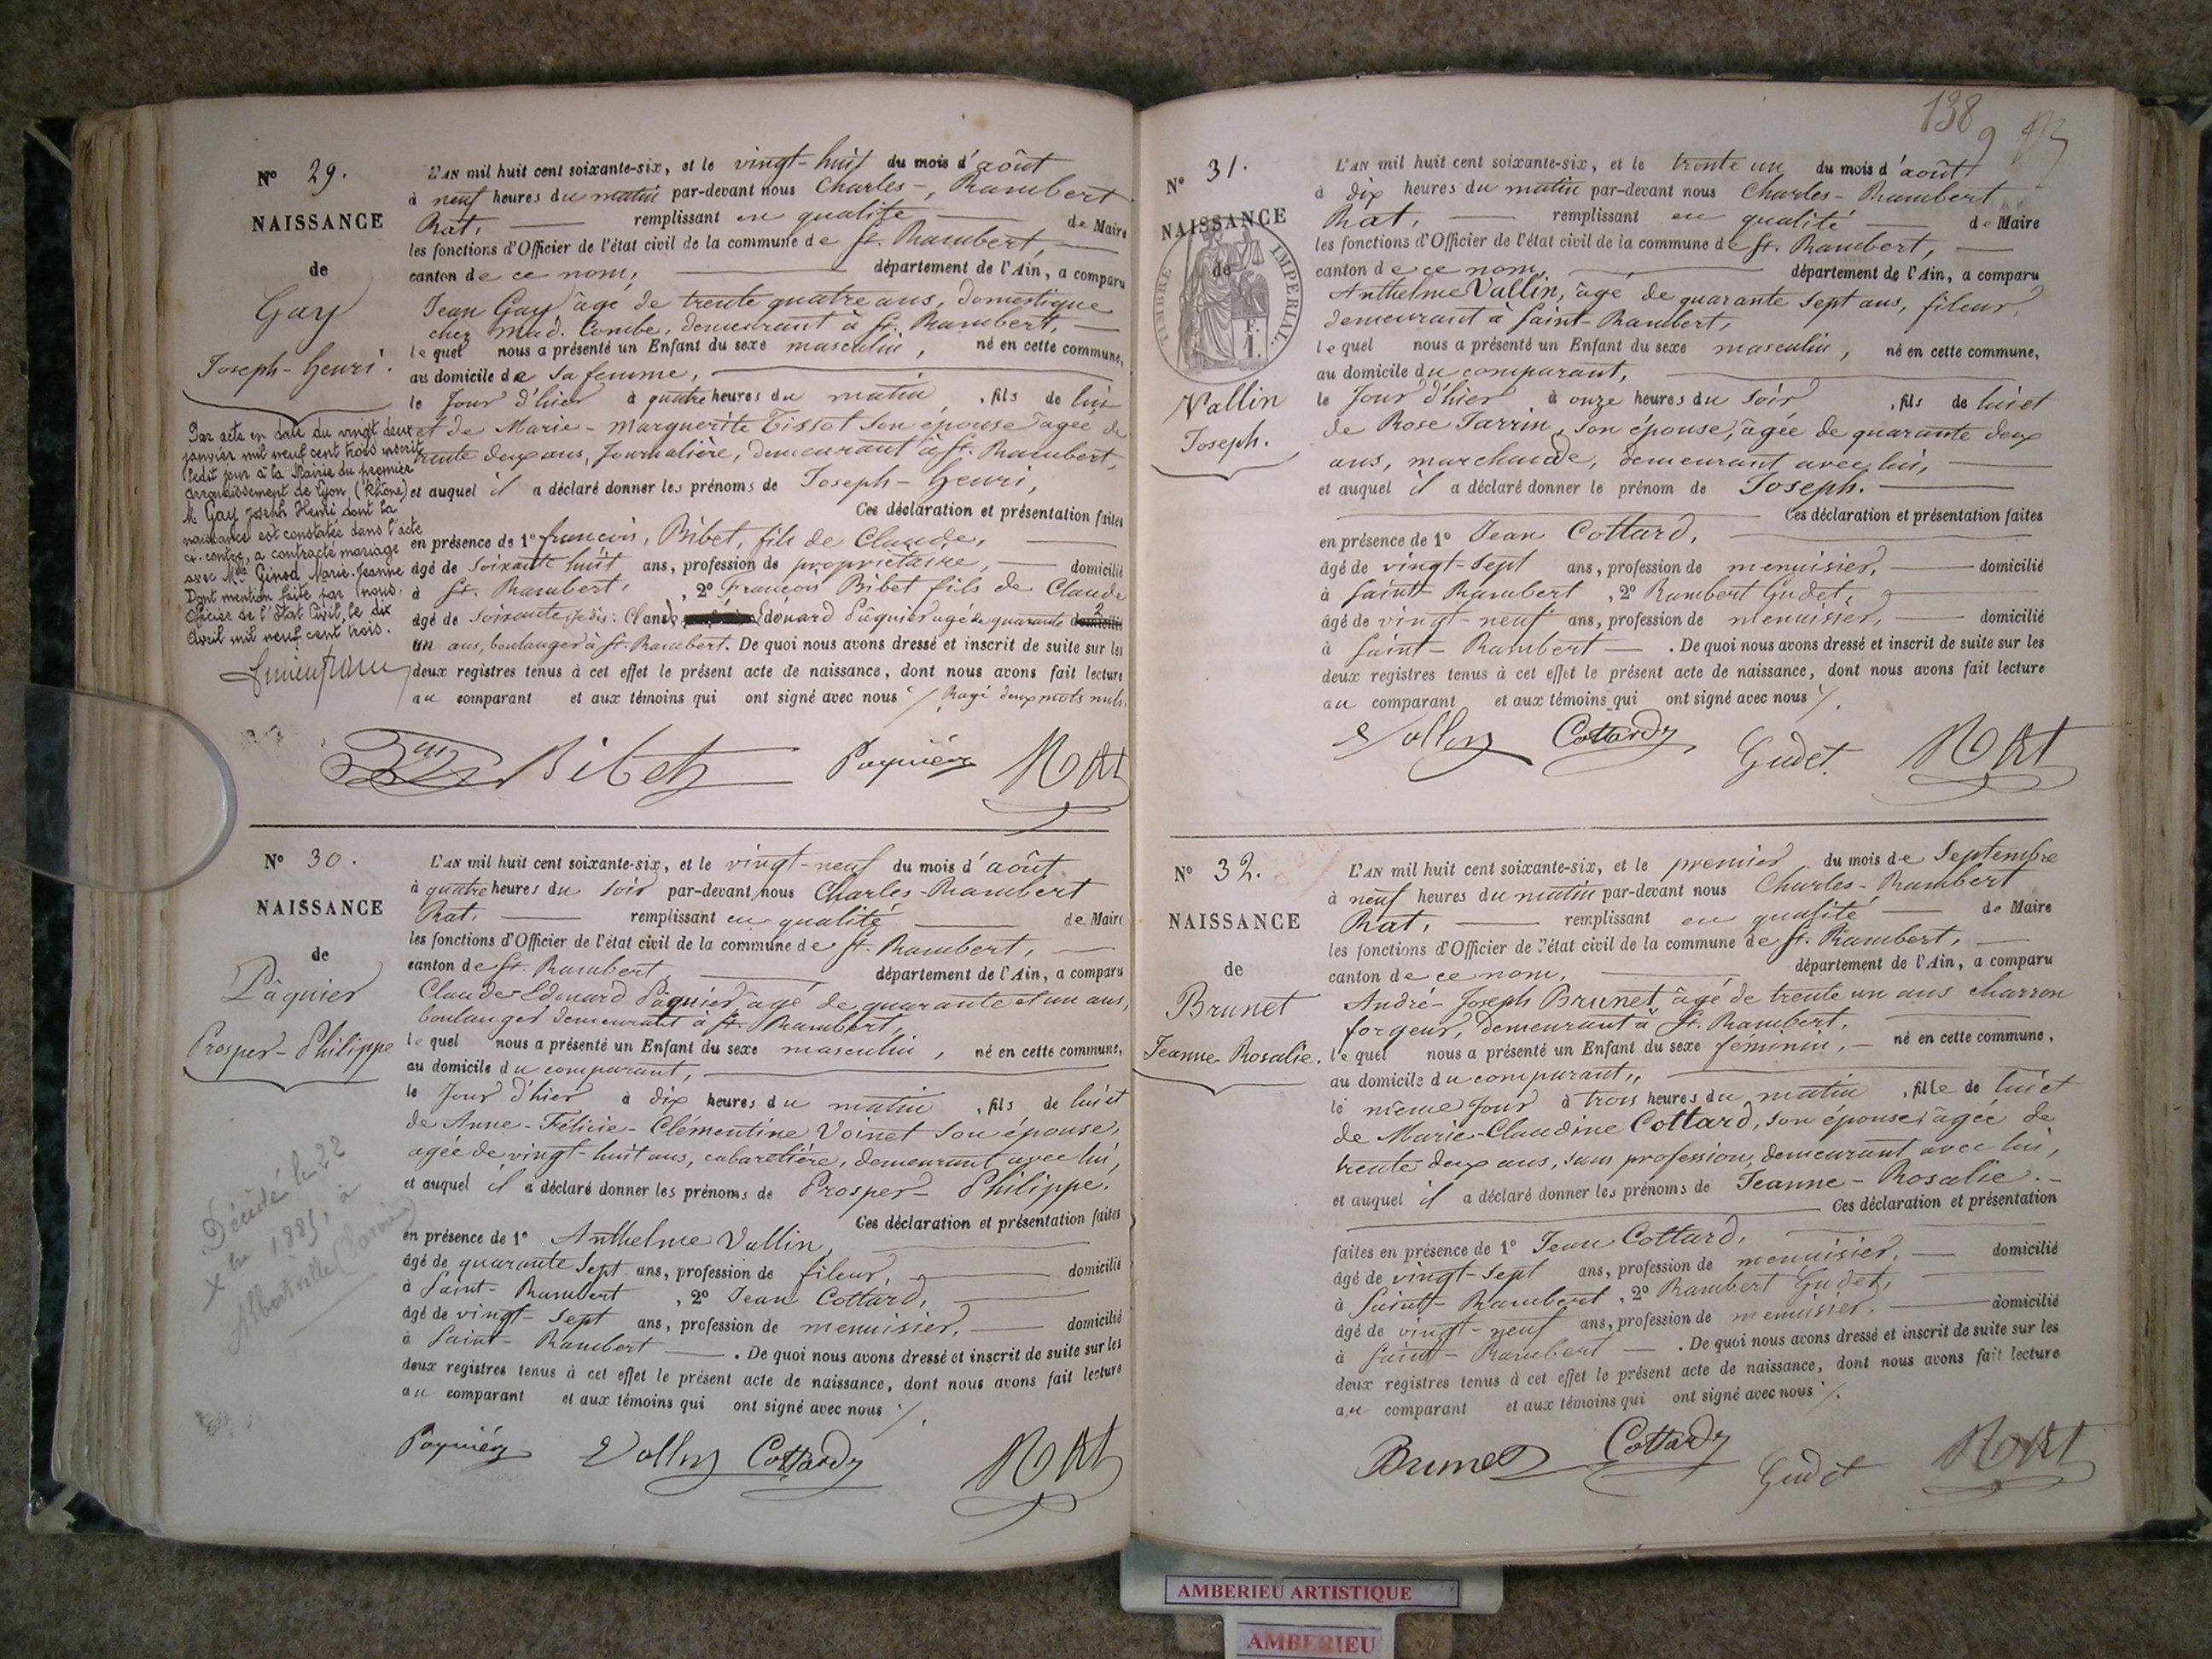 Nº 29.
NAISSANCE
de
Gay
Joseph-Henri.
Par acte en date du vingt deux
janvier mil neuf cent trois inscrit
ledit jour à la Mairie du premier
arrondissement de Lyon, (Rhône)
M. Gay Joseph Henri dont la
naissance est constatée dans l'acte
ci-contre, a contracté mariage
avec Mlle Ginod Marie-Jeanne
Dont mention faite par nous,
Officier de l'Etat Civil, le dix
Avril mil neuf cent trois.
L'AN mil huit cent soixante-six, et le vingt-huit du mois d'août
à neuf heures du matin par-devant nous Charles-, Rambert
Rat, remplissant en qualité de Maire
les fonctions d'Officier de l'état civil de la commune de St. Rambert,
canton de ce nom, département de l'Ain, a comparu
Jean Gay âgé de trente quatre ans, domestique
chez Mad. Combe, demeurant à St. Rambert,
lequel nous a présenté un Enfant du sexe masculin, né en cette commune,
au domicile de sa femme,
le Jour d'hier à quatre heures du matin, fils de lui
et de Marie-Marguerite Tissot son épouse âgée de
trente deux ans, Journalière, demeurant à St. Rambert,
et auquel il a déclaré donner les prénoms de Joseph-Henri,
Ces déclaration et présentation faites
en présence de 1º françois, Bibet, fils de Claude,
âgé de soixante huit ans, profession de propriétaire, domicilié
à St. Rambert, , 2º François Bibet fils de Claude
âgé de soixante je dis: Claude Edouard Pâquier agé de quarante domicilié
un ans, boulanger à St. Rambert. De quoi nous avons dressé et inscrit de suite sur les
deux registres tenus à cet effet le présent acte de naissance, dont nous avons fait lecture
au comparant et aux témoins qui ont signé avec nous /. Rayé deux mots nuls.
Bibet Paquier Rat
Nº 30.
NAISSANCE
de
Pâquier
Prosper-Philippe
Décédé le 22
Xbre 1885, à
Albertville (Savoie)
L'AN mil huit cent soixante-six, et le vingt-neuf du mois d'août
à quatre heures du soir par-devant nous Charles-Rambert
Rat, remplissant en qualité de Maire
les fonctions d'Officier de l'état civil de la commune de St. Rambert,
canton de St. Rambert, département de l'Ain, a comparu
Claude-Edouard Pâquier âgé de quarante et un ans,
boulanger demeurant à St. Rambert,
lequel nous a présenté un Enfant du sexe masculin, né en cette commune,
au domicile du comparant,
le Jour d'hier à dix heures du matin, fils de lui et
de Anne-Félicie-Clémentine Voinet son épouse,
agée de vingt-huit ans, cabaretière, demeurant avec lui,
et auquel il a déclaré donner les prénoms de Prosper-Philippe.
Ces déclaration et présentation faites
en présence de 1º Anthelme Vallin,
âgé de quarante sept ans, profession de fileur, domicilié
à Saint-Rambert, 2º Jean Cottard,
âgé de vingt-sept ans, profession de menuisier, domicilié
à Saint-Rambert. De quoi nous avons dressé et inscrit de suite sur les
deux registres tenus à cet effet le présent acte de naissance, dont nous avons fait lecture
au comparant et aux témoins qui ont signé avec nous /.
Paquier Vallin Cottard Rat
138
Nº 31.
NAISSANCE
de
TIMBRE IMPERIAL.
Vallin
Joseph.
L'AN mil huit cent soixante-six, et le trente un du mois d'août
à dix heures du matin par-devant nous Charles-Rambert
Rat, remplissant en qualité de Maire
les fonctions d'Officier de l'état civil de la commune de St. Rambert,
canton de ce nom, département de l'Ain, a comparu
Anthelme Vallin, âgé de quarante sept ans, fileur,
demeurant à Saint-Rambert,
lequel nous a présenté un Enfant du sexe masculin, né en cette commune,
au domicile du comparant,
le Jour d'hier à onze heures du soir, fils de lui et
de Rose Tarrin, son épouse, âgée de quarante deux
ans, marchande, demeurant avec lui,
et auquel il a déclaré donner le prénom de Joseph.
Ces déclaration et présentation faites
en présence de 1º Jean Cottard,
âgé de vingt-sept ans, profession de menuisier, domicilié
à Saint Rambert, 2º Rambert Gudet,
âgé de vingt-neuf ans, profession de menuisier, domicilié
à Saint-Rambert. De quoi nous avons dressé et inscrit de suite sur les
deux registres tenus à cet effet le présent acte de naissance, dont nous avons fait lecture
au comparant et aux témoins qui ont signé avec nous /.
Vallin Cottard Gudet Rat
Nº 32.
NAISSANCE
de
Brunet
Jeanne-Rosalie.
L'AN mil huit cent soixante-six, et le premier du mois de Septembre
à neuf heures du matin par-devant nous Charles-Rambert
Rat, remplissant en qualité de Maire
les fonctions d'Officier de l'état civil de la commune de St. Rambert,
canton de ce nom, département de l'Ain, a comparu
André-Joseph Brunet âgé de trente un ans charron
forgeur, demeurant à St. Rambert,
lequel nous a présenté un Enfant du sexe feminin, né en cette commune,
au domicile du comparant,
le même Jour à trois heures du matin, fille de lui et
de Marie-Claudine Cottard, son épouse âgée de
trente deux ans, sans profession, demeurant avec lui,
et auquel il a déclaré donner les prénoms de Jeanne-Rosalie.
Ces déclaration et présentation
faites en présence de 1º Jean Cottard,
âgé de vingt-sept ans, profession de menuisier, domicilié
à Saint-Rambert, 2º Rambert Gudet,
âgé de vingt-neuf ans, profession de menuisier. domicilié
à Saint-Rambert. De quoi nous avons dressé et inscrit de suite sur les
deux registres tenus à cet effet le présent acte de naissance, dont nous avons fait lecture
au comparant et aux témoins qui ont signé avec nous /.
Brunet Cottard Gudet Rat
AMBERIEU ARTISTIQUE
AMBERIEU